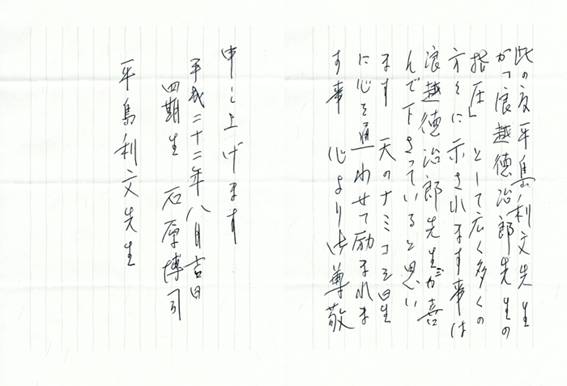 此の度平島利文先生
がつ浪越德治郎先生の
指圧」として広く多くの
方々に示されます事は
浪越德治郎先生が喜
んで下さっていると思い
ます 天のナミコシ星
に心を通わせて励まれま
す事 心より御尊敬
申し上げます
平成二十二年八月吉日
四期生 石原博司
平島利文先生